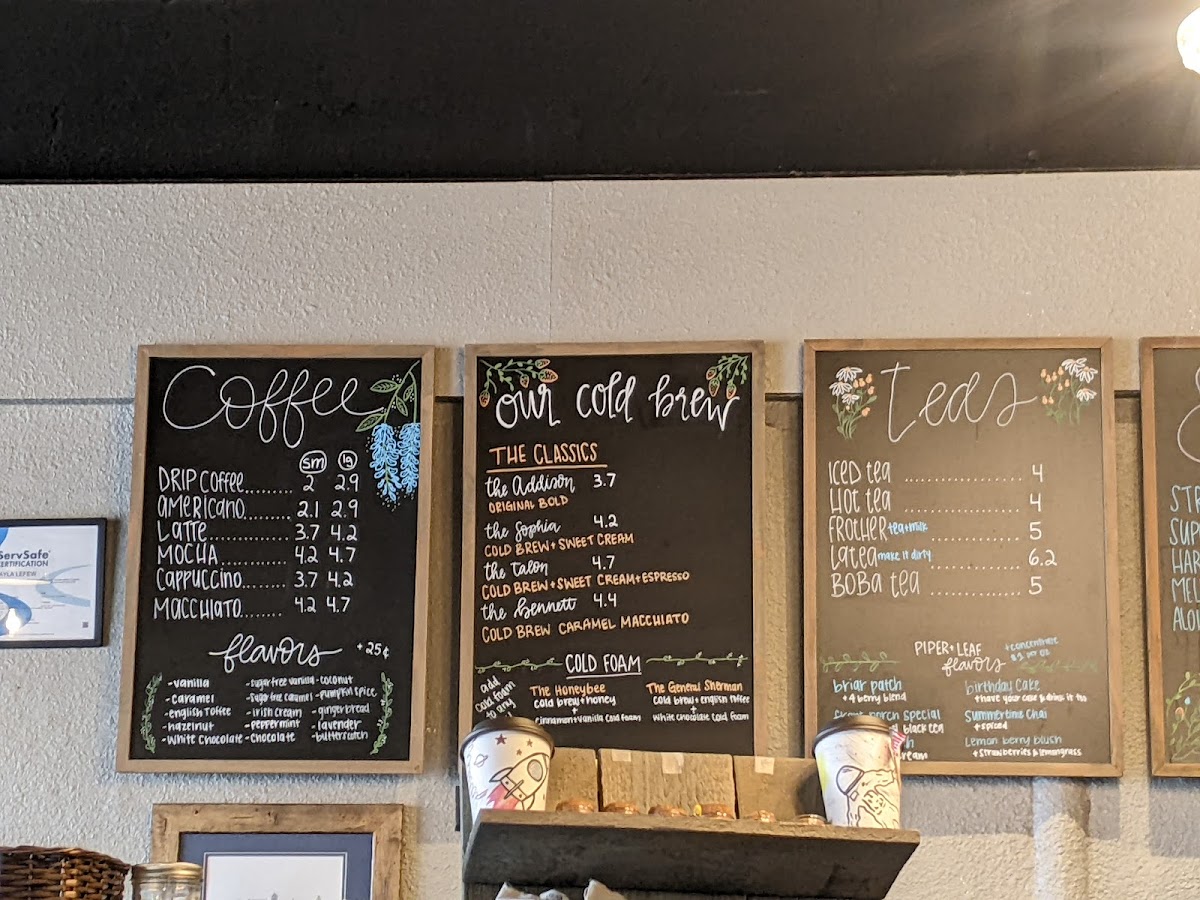 Coffee
sm lg
DRIP COFFEE......... 2 2.9
AMERICANO........ 2.1 2.9
LATTE............... 3.7 4.2
MOCHA............. 4.2 4.7
CAPPUCCINO...... 3.7 4.2
MACCHIATO....... 4.2 4.7
flavors +25¢
-vanilla -sugar free vanilla -coconut
-caramel -sugar free caramel -pumpkin spice
-english toffee -irish cream -gingerbread
-hazelnut -peppermint -lavender
-white chocolate -chocolate -butterscotch
our cold brew
THE CLASSICS
the Addison 3.7
ORIGINAL BOLD
the Sophia 4.2
COLD BREW + SWEET CREAM
the Talon 4.7
COLD BREW + SWEET CREAM + ESPRESSO
the Bennett 4.4
COLD BREW CARAMEL MACCHIATO
COLD FOAM
add
cold foam
to any
The Honeybee
cold brew + honey
+
cinnamon + vanilla cold foam
The General Sherman
cold brew + english toffee
+
white chocolate cold foam
teas
ICED tea .................... 4
HOT tea .................... 4
FROTHER tea + milk ............... 5
Latea make it dirty ............... 6.2
BOBA tea ............... 5
PIPER + LEAF
flavors
+ concentrate
briar patch
+ 4 berry blend
porch special
black tea
birthday cake
+ have your cake & drink it too
Summertime chai
+ spiced
Lemon berry blush
+ strawberries & lemongrass
ServSafe
CERTIFICATION